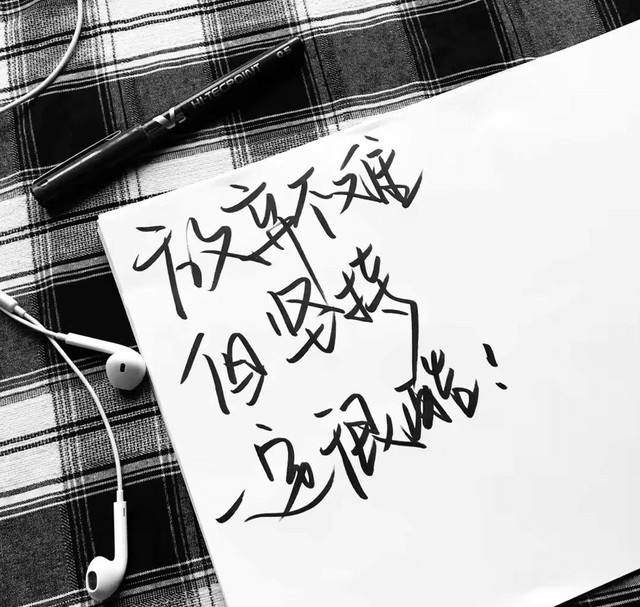 V5 HI-TECPOINT 0.5
放弃不难
但坚持
一定很酷!